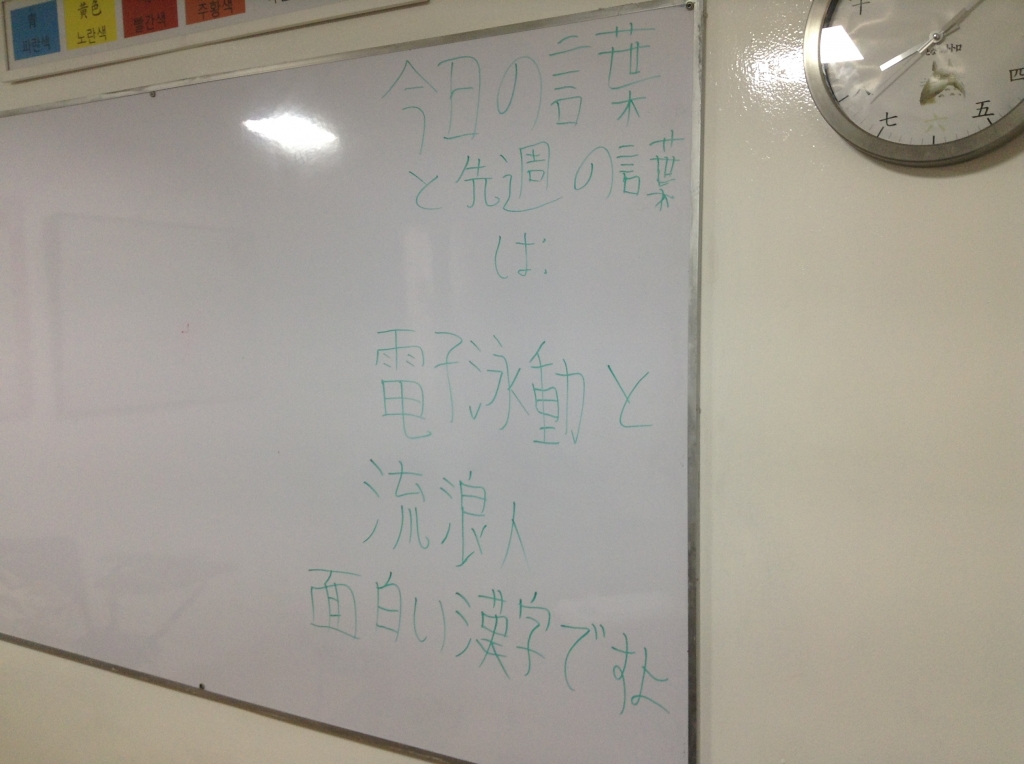 青 黃色
파란색 노란색 빨간색 주황색
今日の言葉
と先週の言葉
は:
電子泳動と
流浪人
面白い漢字ですよ
四
五
六
七
十